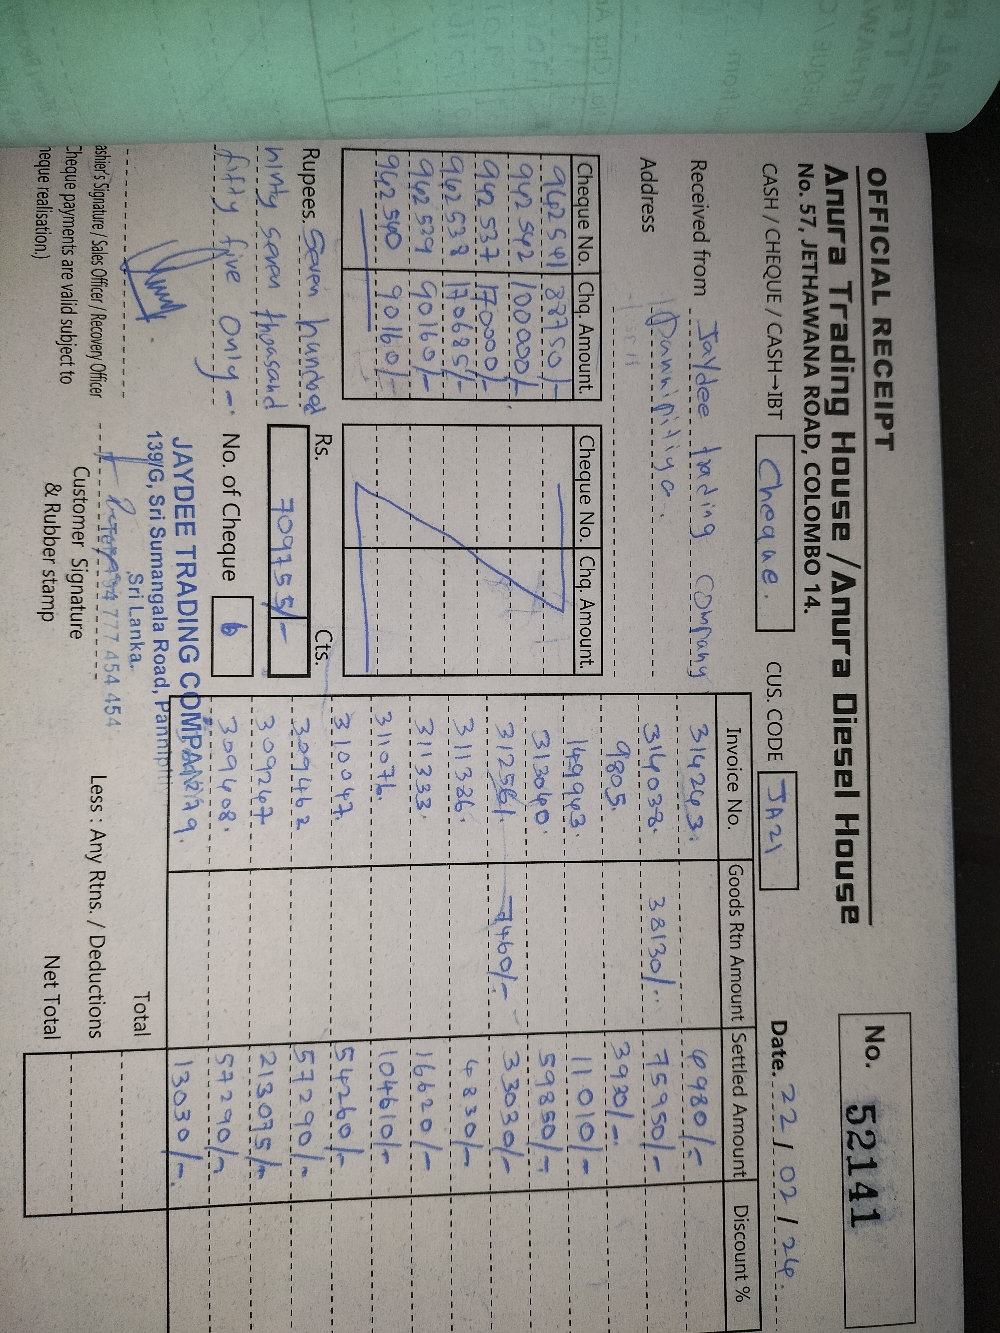 OFFICIAL RECEIPT
Anura Trading House / Anura Diesel House
No. 57, JETHAWANA ROAD, COLOMBO 14.
No. 52141
CASH / CHEQUE / CASH→IBT Cheque. CUS. CODE JA21 Date. 22 / 02 / 24.
Received from Jaydee trading company
Address Pannipitiya.
Cheque No. Chq. Amount.
962541 88750/-
962542 100000/-
962537 170000/-
962538 170685/-
962539 90160/-
962540 90160/-
Cheque No. Chq. Amount.
Invoice No. Goods Rtn Amount Settled Amount Discount %
314263. 6980/-
314038. 38130/- 75950/-
9805. 3930/-
149943. 11010/-
313040. 59850/-
312561 7460/- 33030/-
311326. 4830/-
311333. 16620/-
311076. 104610/-
310047. 54260/-
309462 57290/-
309267 213095/-
309408. 57290/-
13030/-
Rupees. Seven hundred
ninty seven thousand
fifty five only -
Rs. Cts.
709755/-
No. of Cheque 6
JAYDEE TRADING COMPANY
139/G, Sri Sumangala Road,
Sri Lanka.
777 454 454
ashier's Signature / Sales Officer / Recovery Officer
Cheque payments are valid subject to
heque realisation.)
Customer Signature
& Rubber stamp
Total
Less : Any Rtns. / Deductions
Net Total